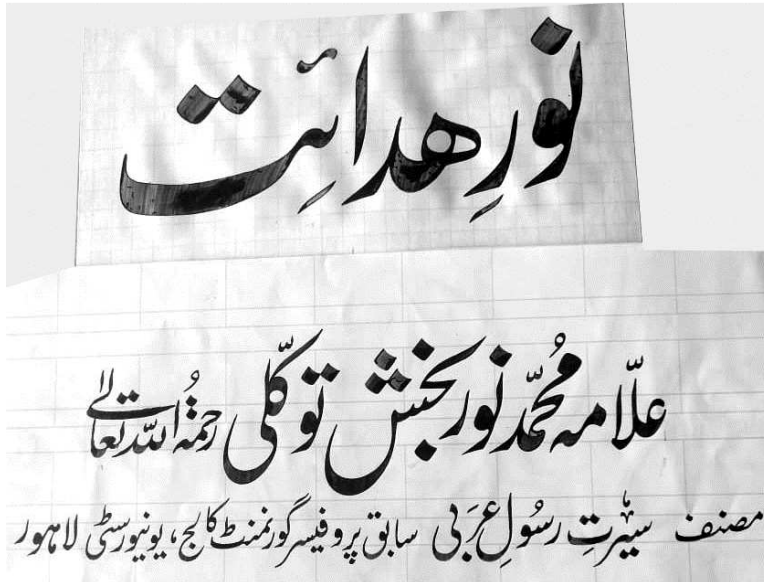 نورِ ھدائت
علّامہ محمّد نور بخش توکّلی رحمۃُ اللہ تعالیٰ
مصنف سیرتِ رسُولِ عرَبی سابق پروفیسر گورنمنٹ کالج، یونیورسٹی لاہور